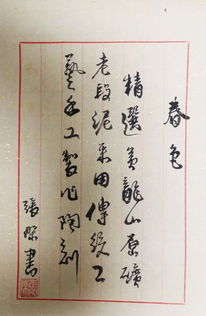 春色
精選黃龍山原礦
老段泥采用傳統工
藝手工製作陶刻
張傑書